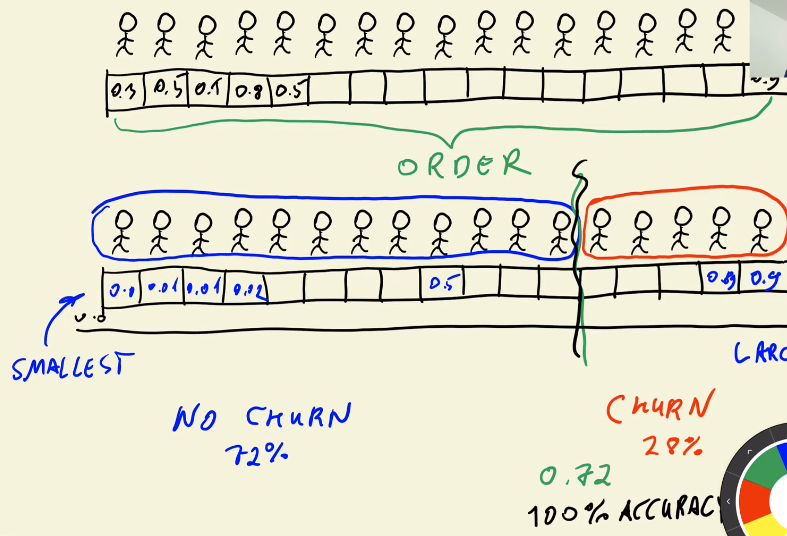 0.3 0.5 0.1 0.8 0.5
ORDER
0.0 0.01 0.01 0.02 0.5 0.9
SMALLEST
NO CHURN
72%
CHURN
28%
0.72
100% ACCURACY